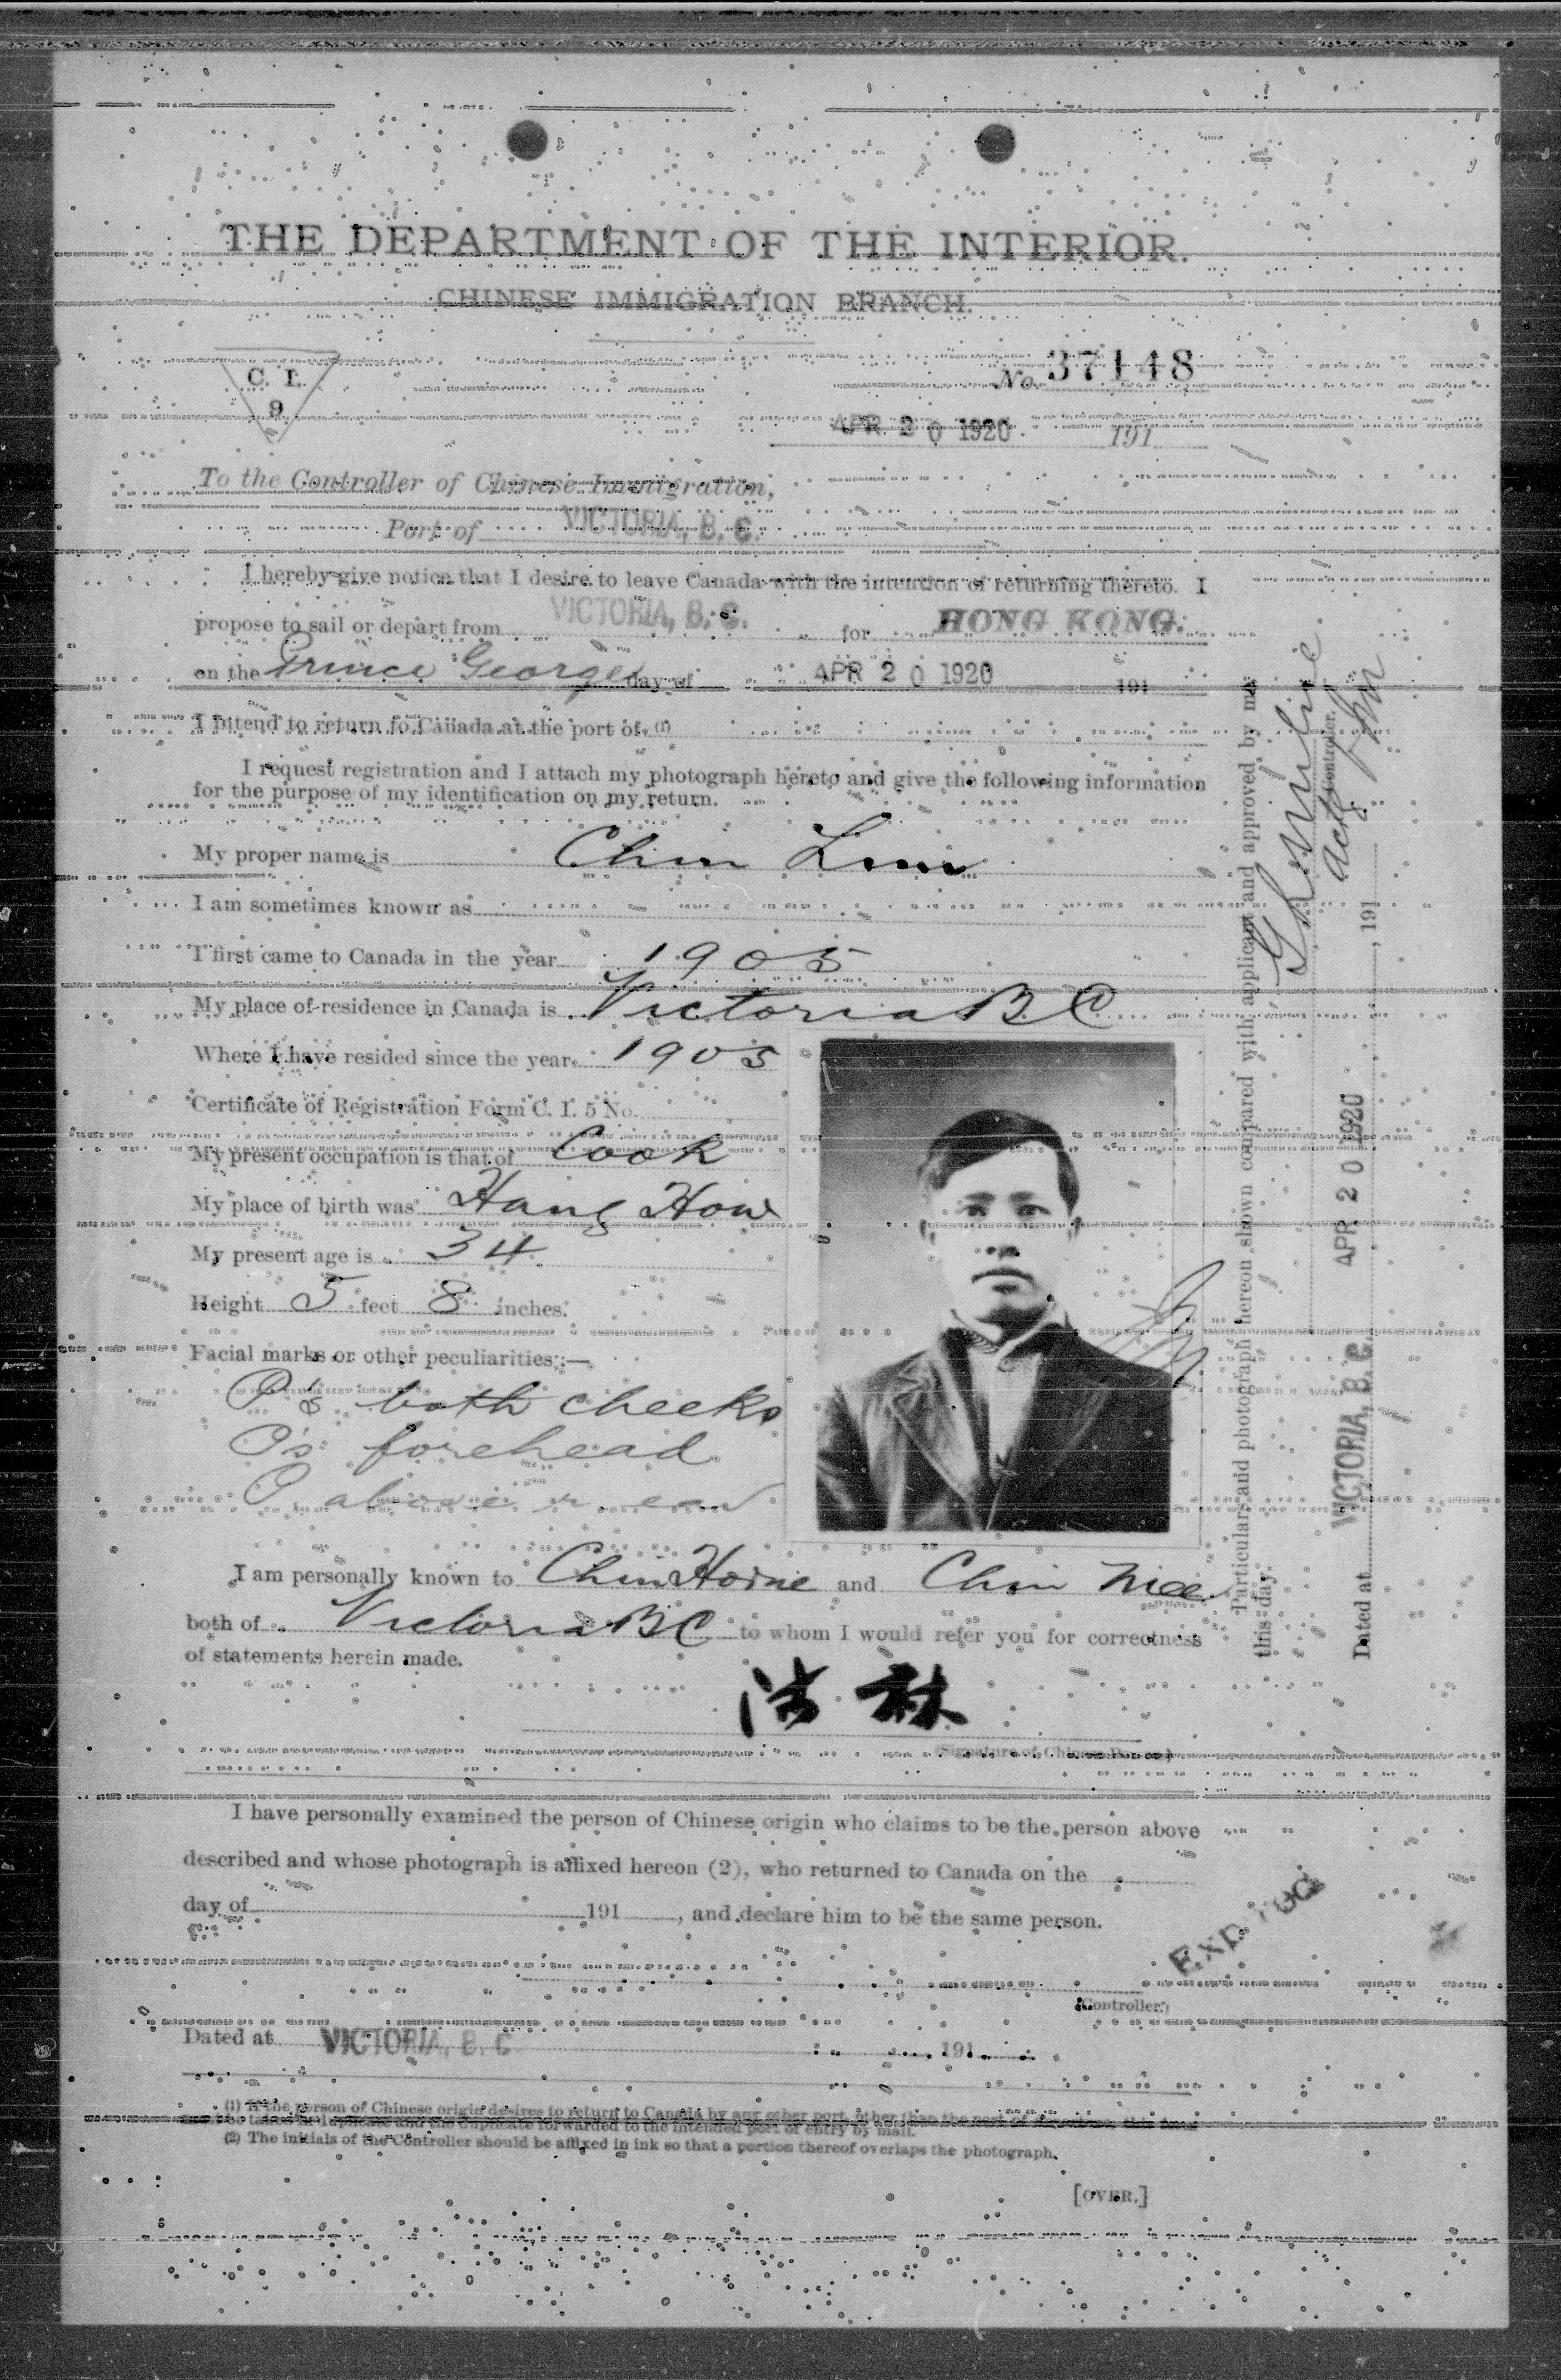 THE DEPARTMENT OF THE INTERIOR.
CHINESE IMMIGRATION BRANCH.
C. I.
9
No. 37148
APR 20 1920 191
To the Controller of Chinese Immigration,
Port of VICTORIA, B. C.
I hereby give notice that I desire to leave Canada with the intention of returning thereto. I
propose to sail or depart from VICTORIA, B. C. for HONG KONG.
on the Prince George day of APR 20 1920 191
I intend to return to Canada at the port of (1)
I request registration and I attach my photograph hereto and give the following information
for the purpose of my identification on my return.
My proper name is Chin Lim
I am sometimes known as
I first came to Canada in the year 1905
My place of residence in Canada is Victoria B C
Where I have resided since the year 1905
Certificate of Registration Form C. I. 5 No.
My present occupation is that of Cook
My place of birth was Hang How
My present age is 34
Height 5 feet 8 inches.
Facial marks or other peculiarities:—
P's both cheeks
P's forehead
P above r ear
I am personally known to Chin Hoine and Chin Mee
both of Victoria B C to whom I would refer you for correctness
of statements herein made.
林
(Signature of Chinese Person)
I have personally examined the person of Chinese origin who claims to be the person above
described and whose photograph is affixed hereon (2), who returned to Canada on the
day of 191 , and declare him to be the same person.
Controller.
Dated at VICTORIA, B. C. 191
(1) If the person of Chinese origin desires to return to Canada by any other port other than the port of
forwarded to the intended port of entry by mail.
(2) The initials of the Controller should be affixed in ink so that a portion thereof overlaps the photograph.
[OVER.]
Particulars and photograph hereon shown compared with applicant and approved by me
this day.
Actg Controller.
Dated at VICTORIA, B. C. APR 20 1920 , 191